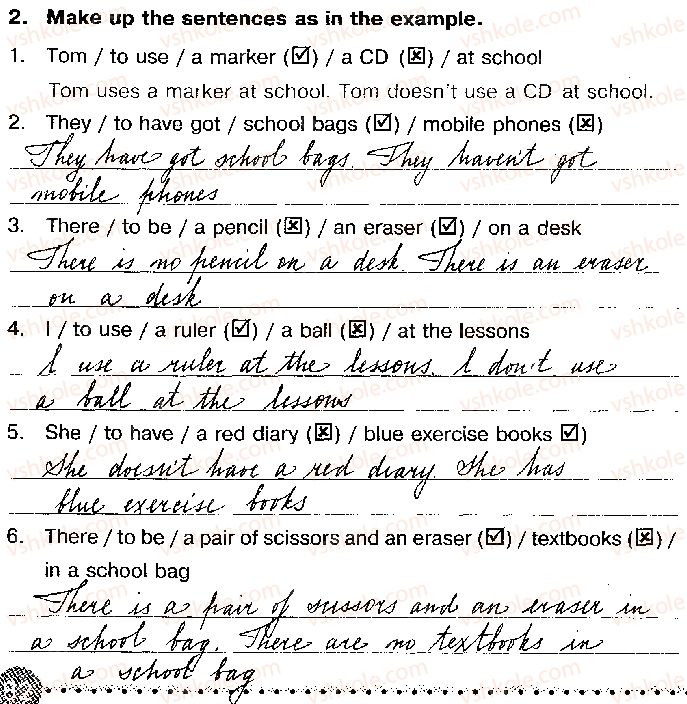 2. Make up the sentences as in the example.
1. Tom / to use / a marker (☑) / a CD (☒) / at school
Tom uses a marker at school. Tom doesn't use a CD at school.
2. They / to have got / school bags (☑) / mobile phones (☒)
They have got school bags. They haven't got
mobile phones
3. There / to be / a pencil (☒) / an eraser (☑) / on a desk
There is no pencil on a desk. There is an eraser
on a desk
4. I / to use / a ruler (☑) / a ball (☒) / at the lessons
I use a ruler at the lessons. I don't use
a ball at the lessons
5. She / to have / a red diary (☒) / blue exercise books ☑)
She doesn't have a red diary. She has
blue exercise books
6. There / to be / a pair of scissors and an eraser (☑) / textbooks (☒) /
in a school bag
There is a pair of scissors and an eraser in
a school bag. There are no textbooks in
a school bag
vshkole.com